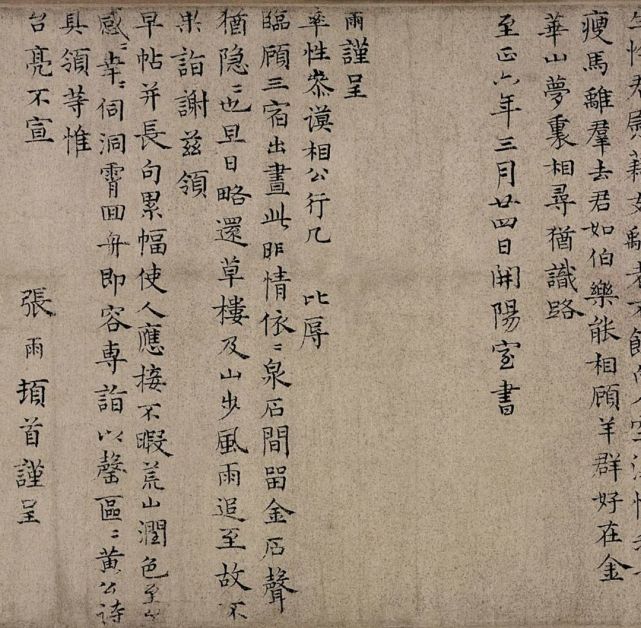 瘦馬離羣去君如伯樂能相顧羊群好在金
華山夢裏相尋猶識路
至正六年三月廿四日開陽室書
雨謹呈
率性叅謨相公行几 比辱
臨顧三宿出晝此昨情依〻泉石間畱金石聲
猶隐〻也旦日略還草樓及山步風雨追至故不
果詣謝茲領
早帖并長句累幅使人應接不暇荒山潤色至
感〻幸〻伺洞霄回舟即容專詣以罄區〻黄公詩
具領等惟
台亮不宣
張雨頓首謹呈